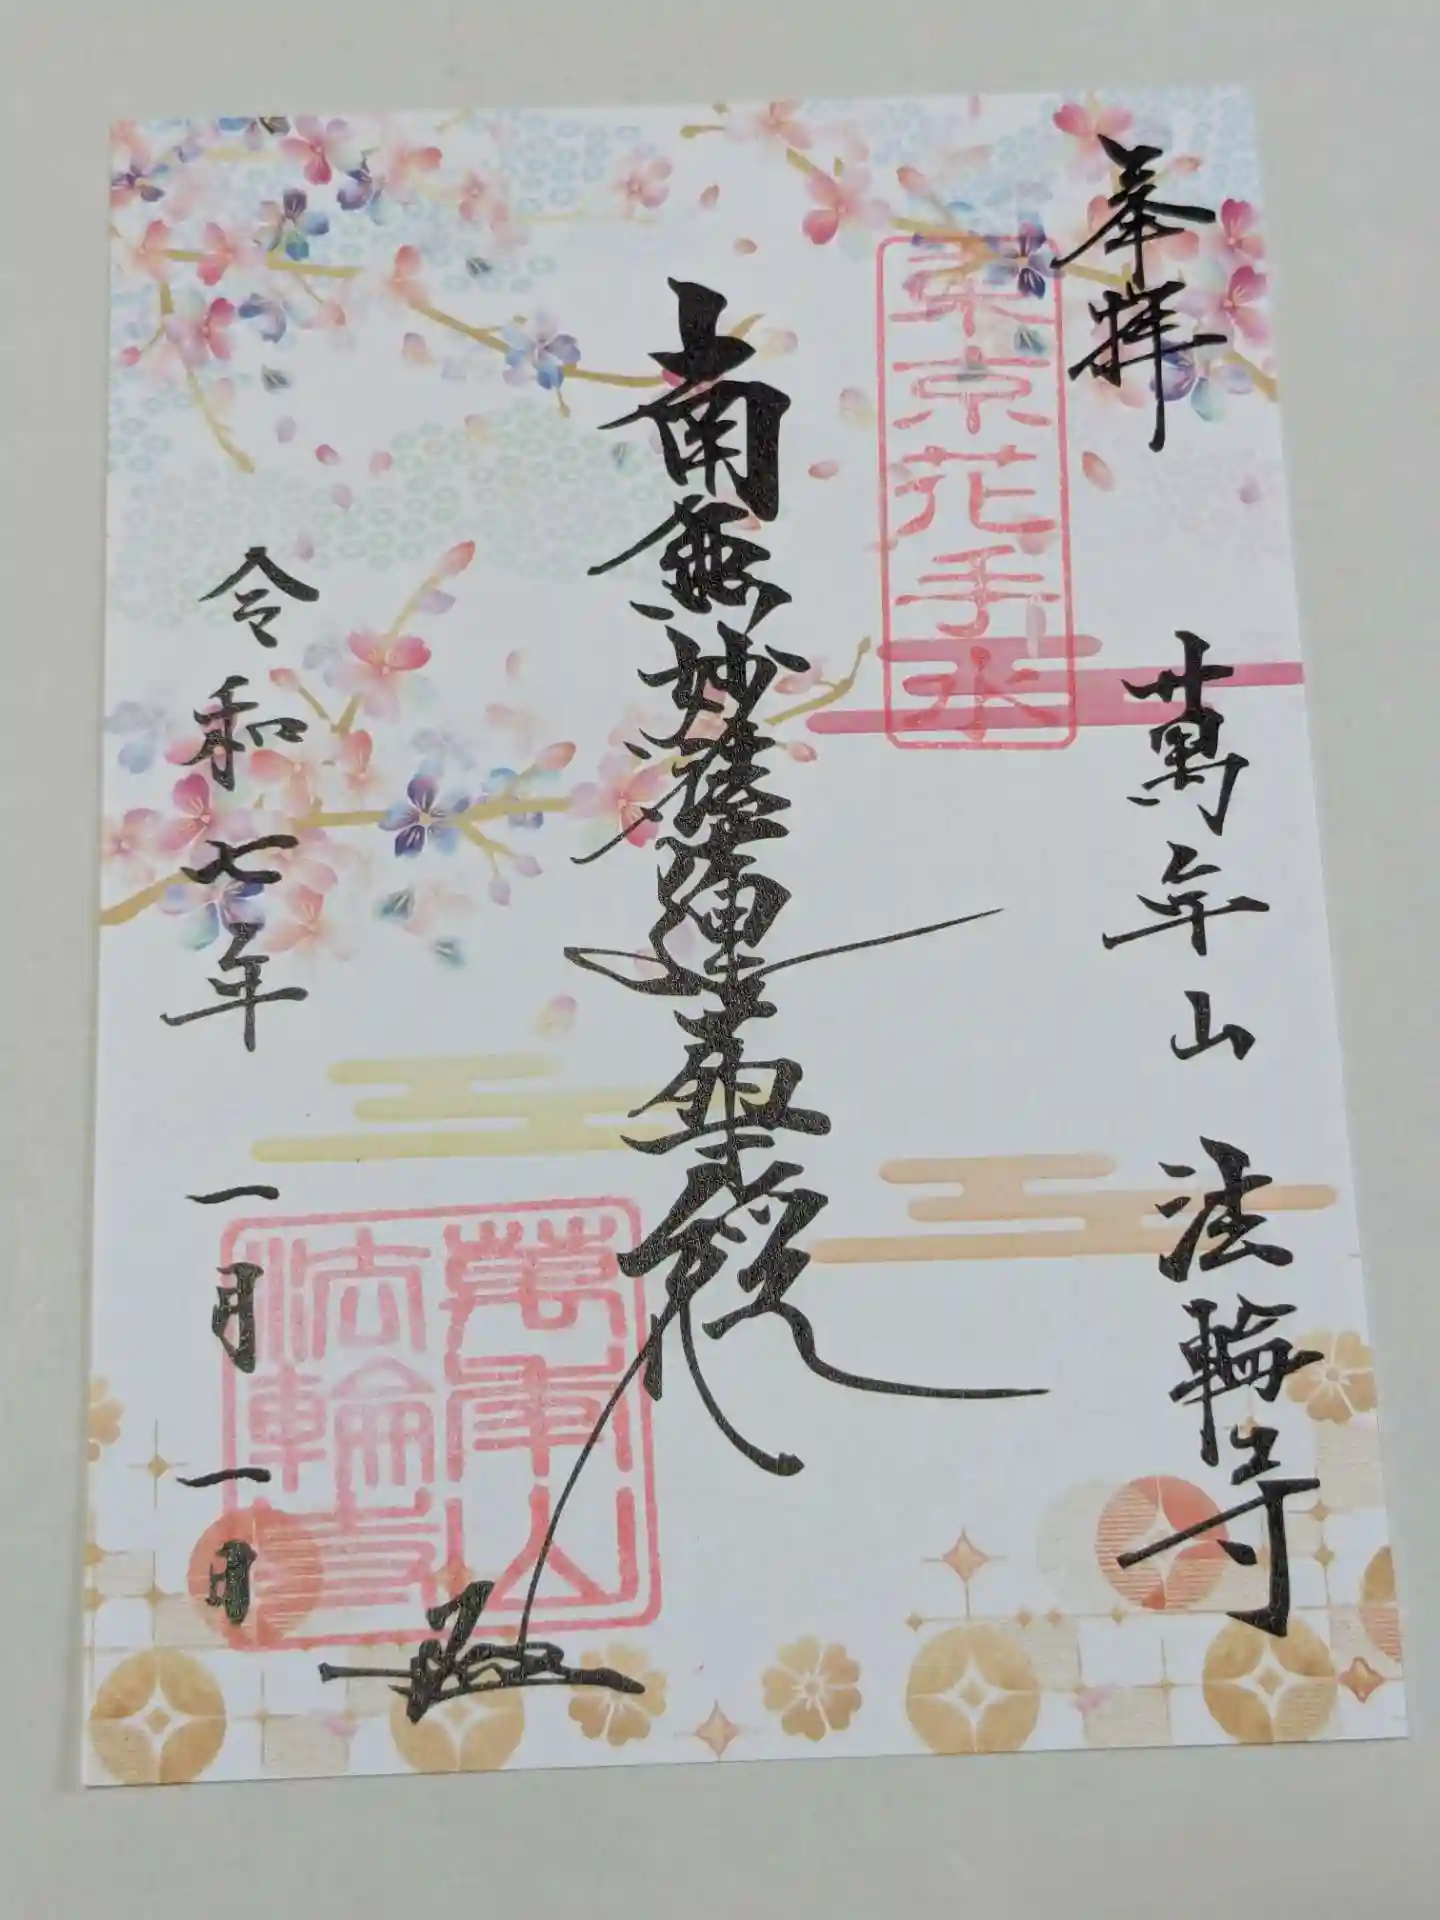 奉拝
萬年山 法輪寺
東京花手水
南無妙法蓮華経
萬年山
法輪寺
令和七年 一月一日